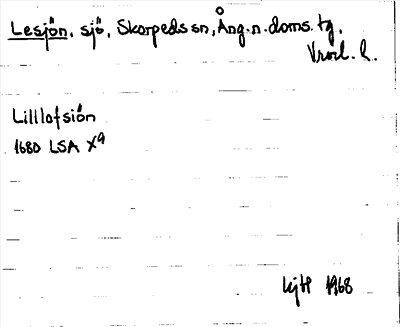 Lesjön, sjö, Skorpeds sn, Ång.n.doms.tg.
Lilllofsiön
1680 LSA X9
1968